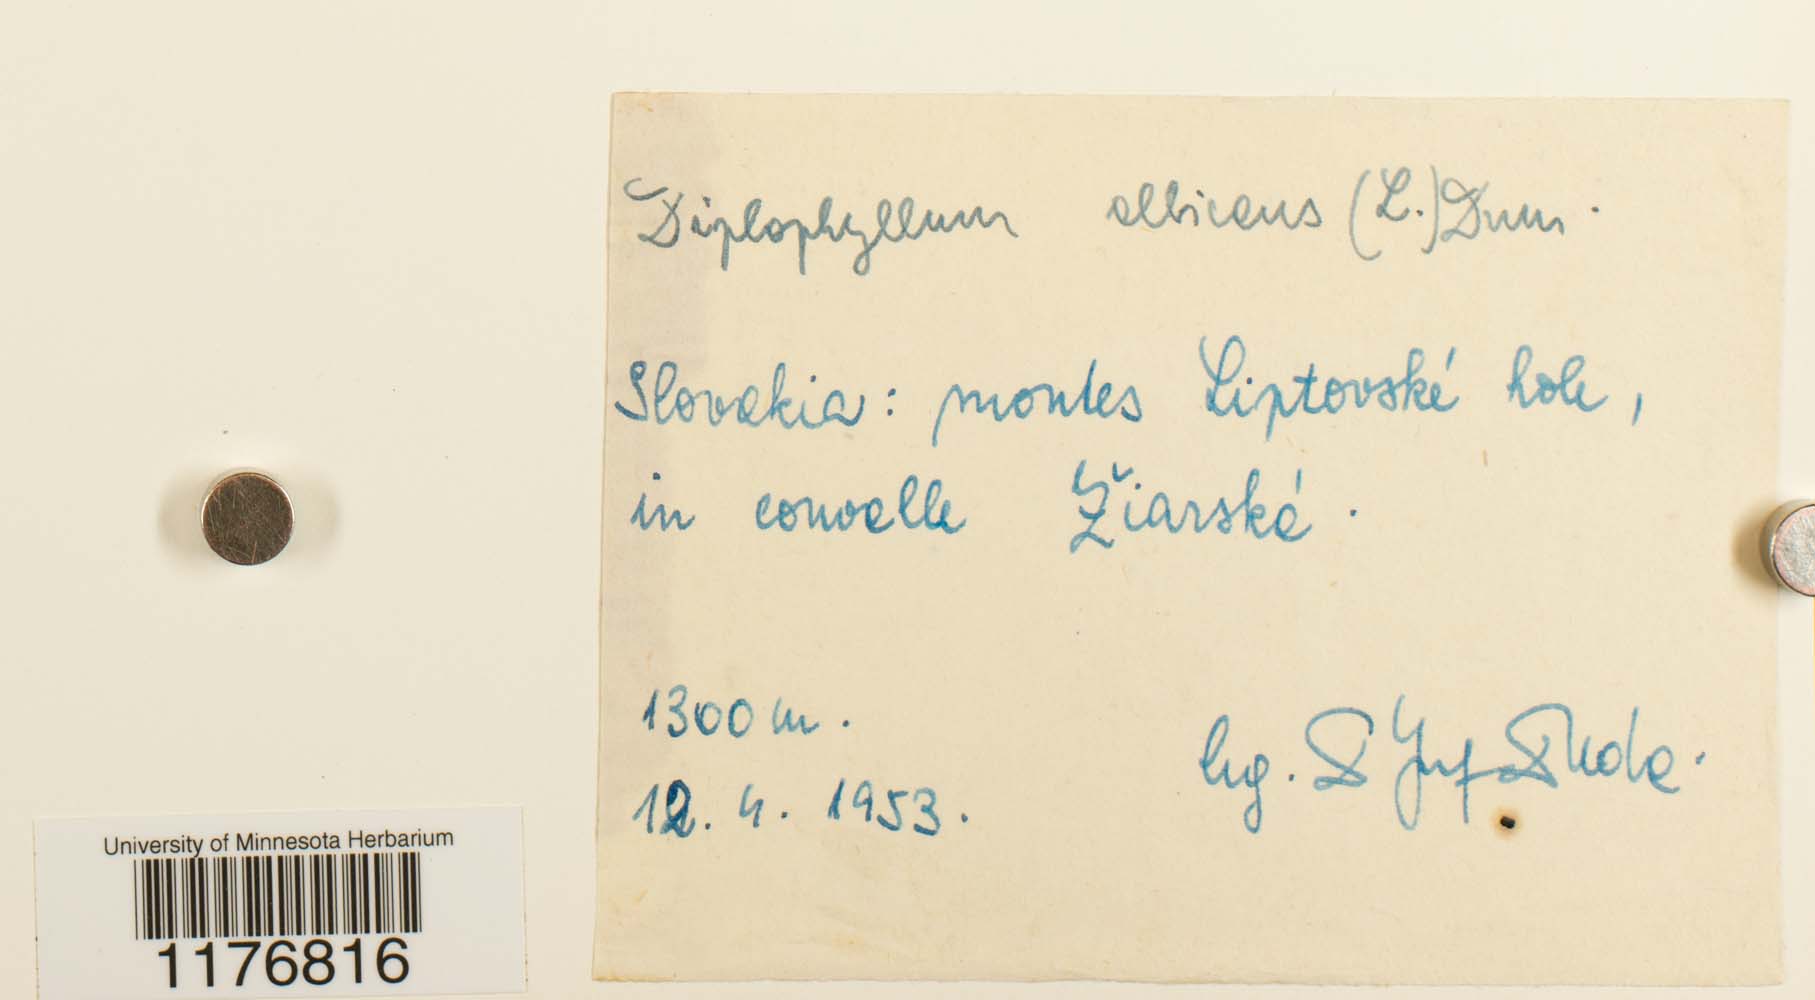 Diplophyllum albicans (L.) Dum.
Slovakia: montes Liptovské hole,
in convalle Žiarské.
1300 m.
12. 4. 1953.
leg. Duda.
University of Minnesota Herbarium
1176816